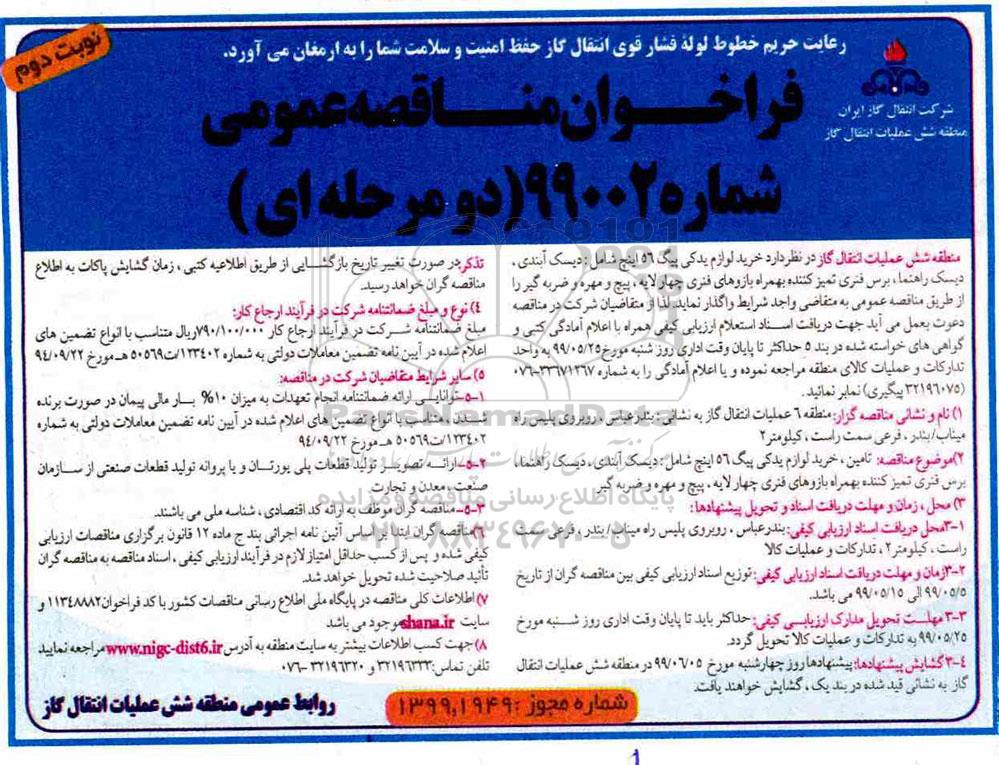 نوبت دوم
رعایت حریم خطوط لولهٔ فشار قوی انتقال گاز حفظ امنیت و سلامت شما را به ارمغان می آورد.
شرکت انتقال گاز ایران
منطقه شش عملیات انتقال گاز
فراخوان مناقصه عمومی
شماره ۹۹۰۰۲ (دو مرحله ای)
منطقه شش عملیات انتقال گاز در نظر دارد خرید لوازم یدکی پیگ ۵۶ اینچ شامل : دیسک آبندی ،
دیسک راهنما ، برس فنری تمیز کننده بهمراه بازوهای فنری چهار لایه ، پیچ و مهره و ضربه گیر را
از طریق مناقصه عمومی به متقاضی واجد شرایط واگذار نماید. لذا از متقاضیان شرکت در مناقصه
دعوت بعمل می آید جهت دریافت اسناد استعلام ارزیابی کیفی همراه با اعلام آمادگی کتبی و
گواهی های خواسته شده در بند ۵ حداکثر تا پایان وقت اداری روز شنبه مورخ ۹۹/۰۵/۲۵ به واحد
تدارکات و عملیات کالای منطقه مراجعه نموده و یا اعلام آمادگی را به شماره ۳۳۶۷۱۲۶۷-۰۷۶
(۳۲۱۹۶۰۷۵ پیگری) نمابر نمائید .
۱) نام و نشانی مناقصه گزار: منطقه ۶ عملیات انتقال گاز به نشانی : بندرعباس ، روبروی پلیس راه
میناب/بندر ، فرعی سمت راست ، کیلومتر ۲
۲)موضوع مناقصه: تامین ، خرید لوازم یدکی پیگ ۵۶ اینچ شامل : دیسک آبندی ، دیسک راهنما،
برس فنری تمیز کننده بهمراه بازوهای فنری چهار لایه ، پیچ و مهره و ضربه گیر
۳) محل ، زمان و مهلت دریافت اسناد و تحویل پیشنهادها :
۳-۱محل دریافت اسناد ارزیابی کیفی: بندرعباس ، روبروی پلیس راه میناب/ بندر ، فرعی سمت
راست ، کیلومتر ۲ ، تدارکات و عملیات کالا
۳-۲زمان و مهلت دریافت اسناد ارزیابی کیفی: توزیع اسناد ارزیابی کیفی بین مناقصه گران از تاریخ
۹۹/۰۵/۵ الی ۹۹/۰۵/۱۵ می باشد.
۳-۳ مهلت تحویل مدارک ارزیابی کیفی: حداکثر باید تا پایان وقت اداری روز شنبه مورخ
۹۹/۰۵/۲۵ به تدارکات و عملیات کالا تحویل گردد.
۳-۴ گشایش پیشنهادها: پیشنهادها روز چهارشنبه مورخ ۹۹/۰۶/۰۵ در منطقه شش عملیات انتقال
گاز به نشانی قید شده در بند یک ، گشایش خواهند یافت.
تذکر: در صورت تغییر تاریخ بازگشایی از طریق اطلاعیه کتبی ، زمان گشایش پاکات به اطلاع
مناقصه گران خواهد رسید.
۴) نوع و مبلغ ضمانتنامه شرکت در فرآیند ارجاع کار:
مبلغ ضمانتنامه شرکت در فرآیند ارجاع کار ۷۹۰/۱۰۰/۰۰۰ریال متناسب با انواع تضمین های
اعلام شده در آیین نامه تضمین معاملات دولتی به شماره ۱۲۳۴۰۲/ت۵۰۵۶۹ هـ مورخ ۹۴/۰۹/۲۲
۵) سایر شرایط متقاضیان شرکت در مناقصه:
۵-۱-توانایی ارائه ضمانتنامه انجام تعهدات به میزان ۱۰% بار مالی پیمان در صورت برنده
شدن، متناسب با انواع تضمین های اعلام شده در آیین نامه تضمین معاملات دولتی به شماره
۱۲۳۴۰۲/ت۵۰۵۶۹ هـ مورخ ۹۴/۰۹/۲۲
۵-۲- ارائه تصویر تولید قطعات پلی یورتان و یا پروانه تولید قطعات صنعتی از سازمان
صنعت ، معدن و تجارت
۵-۳-مناقصه گران موظف به ارائه کد اقتصادی ، شناسه ملی می باشند.
۶)مناقصه گران ابتدا بر اساس آئین نامه اجرائی بند ج ماده ۱۲ قانون برگزاری مناقصات ارزیابی
کیفی شده و پس از کسب حداقل امتیاز لازم در فرآیند ارزیابی کیفی ، اسناد مناقصه به مناقصه گران
تأئید صلاحیت شده تحویل خواهد شد.
۷) اطلاعات کلی مناقصه در پایگاه ملی اطلاع رسانی مناقصات کشور با کد فراخوان ۱۱۳۴۸۸۸۲ و
سایت shana.ir موجود می باشد
۸) جهت کسب اطلاعات بیشتر به سایت منطقه به آدرس www.nigc-dist6.ir مراجعه نمایید
تلفن تماس : ۳۲۱۹۶۳۳۳ و ۳۲۱۹۶۳۲۰ -۰۷۶
شماره مجوز :۱۳۹۹,۱۹۴۹
روابط عمومی منطقه شش عملیات انتقال گاز
ParsNamadData
پایگاه اطلاع رسانی مناقصه و مزایده
1